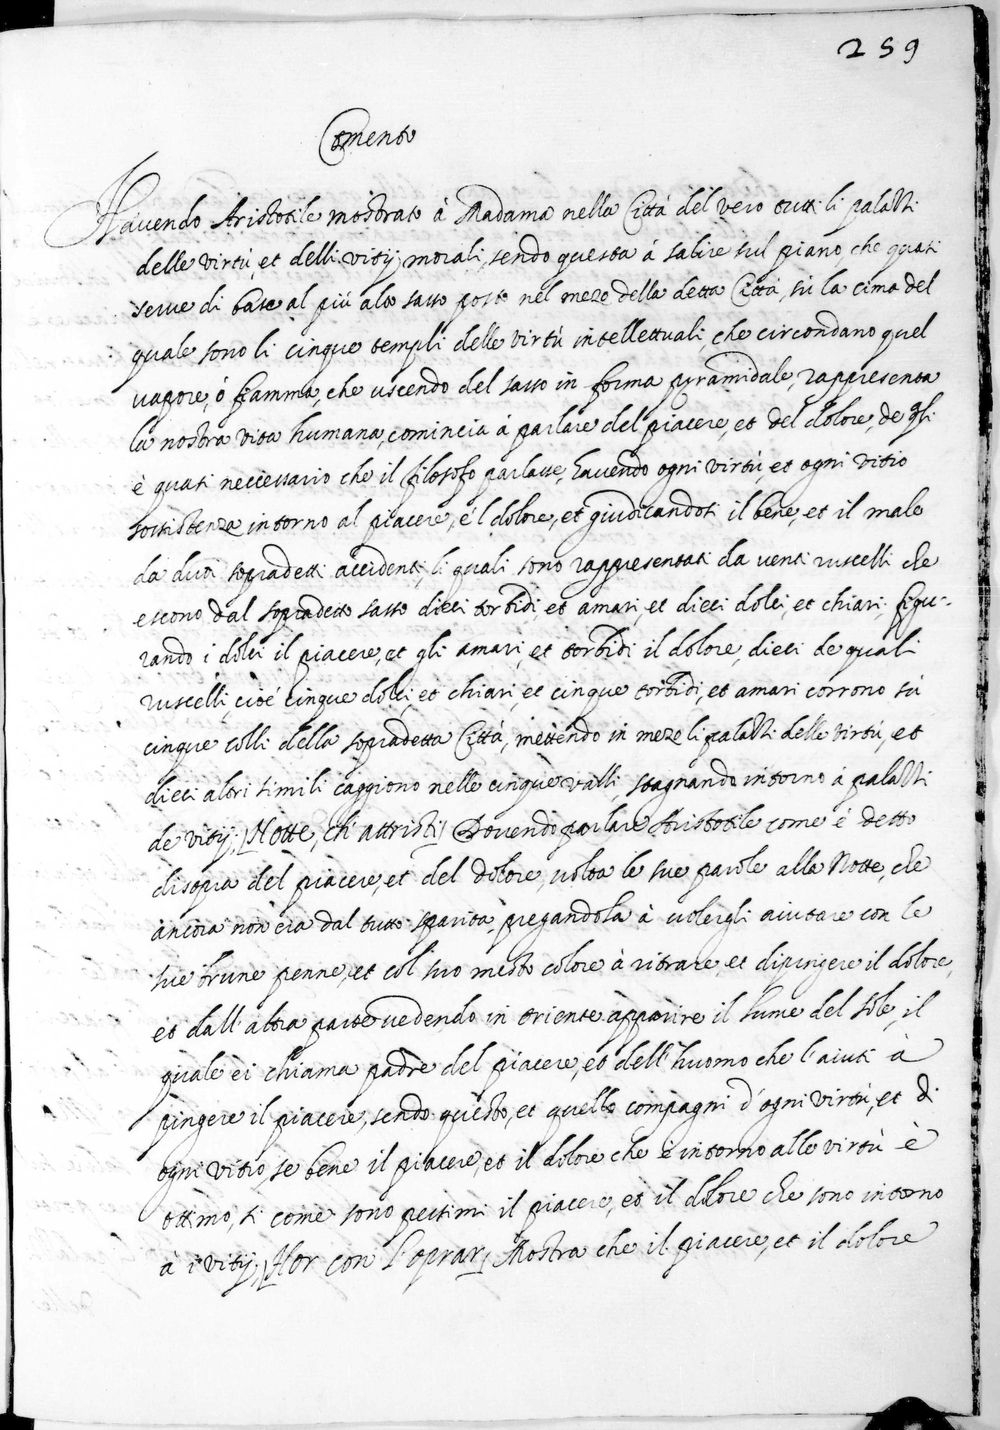 259
Comento
Havendo Aristotile mostrato à Madama nella Città del vero tutti li palazzi
delle virtù, et delli vitij morali, sendo questa à salire sul piano, che quasi
serve di base al più alto sasso posto nel mezo della detta Città, sù la cima del
quale sono li cinque templi delle virtù intellettuali, che circondano quel
vapore, ò fiamma, che uscendo del sasso in forma pyramidale, rappresenta
la nostra vita humana, comincia à parlare del piacere, et del dolore, de qsti
è quasi necessario che il filosofo parlasse, havendo ogni virtù, et ogni vitio
sossistenza intorno al piacere, è l dolore, et giudicandosi il bene, et il male
da dui sopradetti accidenti, li quali sono rappresentati da venti ruscelli che
escono dal sopradetto sasso dieci torbidi, et amari, et dieci dolci, et chiari, figu-
rando i dolci il piacere, et gli amari, et torbidi il dolore, dieci de quali
ruscelli, cioè cinque dolci, et chiari, et cinque torbidi, et amari corrono sù
cinque colli della sopradetta Città, mettendo in meze li palazzi delle virtù, et
dieci altri simili caggiono nelle cinque valli, stagnando intorno à palazzi
de vitij; Notte, ch' attristi Dovendo parlare Aristotile come è detto
disopra del piacere, et del dolore, volta le sue parole alla Notte, che
ancora non era dal tutto sparita, pregandola à volergli aiutare con le
sue brune penne, et col suo mesto colore à ritrare, et dipingere il dolore,
et dall' altra parte vedendo in oriente apparire il lume del sole, il
quale ei chiama padre del piacere, et dell' huomo che l' aiuti à
pingere il piacere, sendo questo, et quello compagni d' ogni virtù, et di
ogni vitio, se bene il piacere, et il dolore che è intorno alle virtù è
ottimo, si come sono pessimi il piacere, et il dolore che sono intorno
à i vitij, Hor con l' oprar Mostra che il piacere, et il dolore